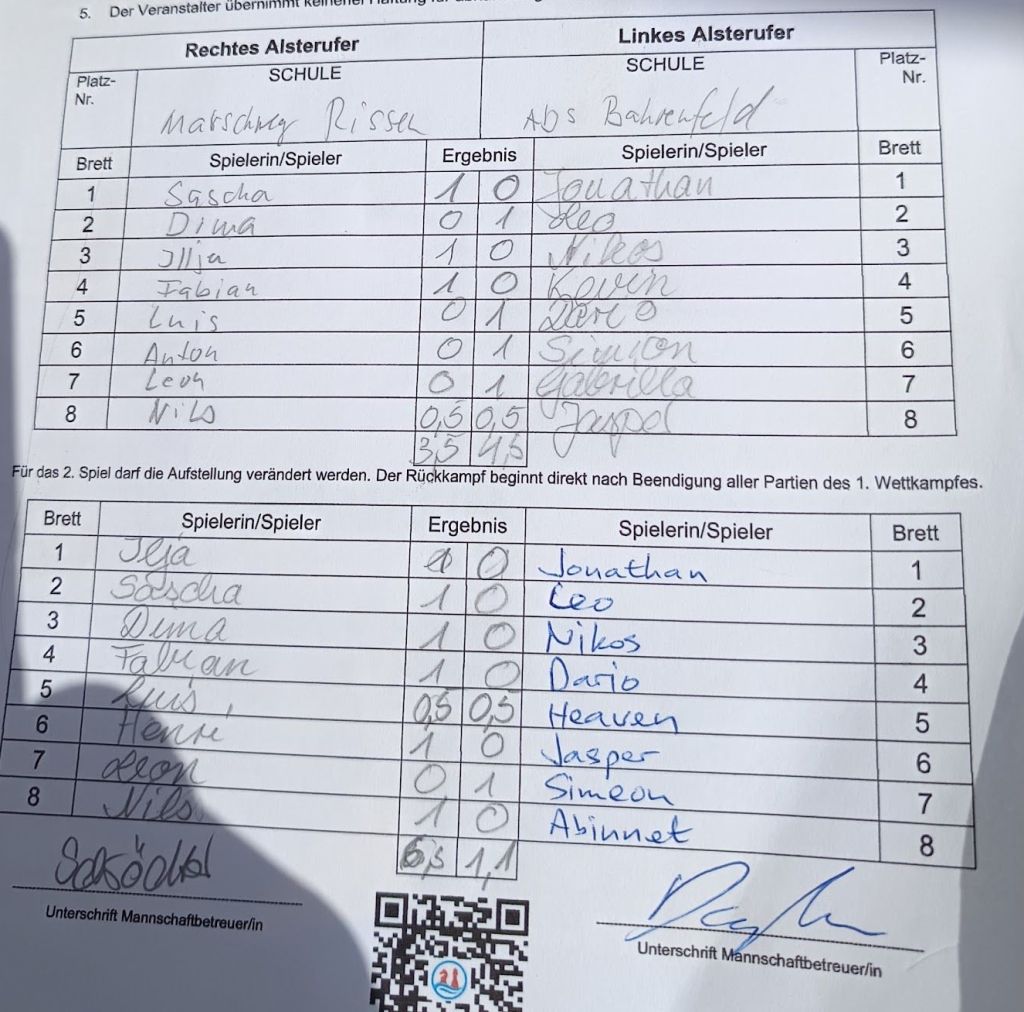 5. Der Veranstalter übernimmt keinerlei Haftung für
Rechtes Alsterufer Linkes Alsterufer
Platz-Nr. SCHULE SCHULE Platz-Nr.
Marschweg Rissen Abs Bahrenfeld
Brett Spielerin/Spieler Ergebnis Spielerin/Spieler Brett
1 Sascha 1 0 Jonathan 1
2 Dima 0 1 Leo 2
3 Illja 1 0 Nikos 3
4 Fabian 1 0 Kevin 4
5 Luis 0 1 Dario 5
6 Anton 0 1 Simeon 6
7 Leon 0 1 Gabriella 7
8 Nils 0,5 0,5 8
3,5 4,5
Für das 2. Spiel darf die Aufstellung verändert werden. Der Rückkampf beginnt direkt nach Beendigung aller Partien des 1. Wettkampfes.
Brett Spielerin/Spieler Ergebnis Spielerin/Spieler Brett
1 Ilja 1 0 Jonathan 1
2 Sascha 1 0 Leo 2
3 Dima 1 0 Nikos 3
4 Fabian 1 0 Dario 4
5 Luis 0,5 0,5 Heaven 5
6 Henri 1 0 Jasper 6
7 Leon 0 1 Simeon 7
8 Nils 1 0 Abinnet 8
Unterschrift Mannschaftbetreuer/in Unterschrift Mannschaftbetreuer/in